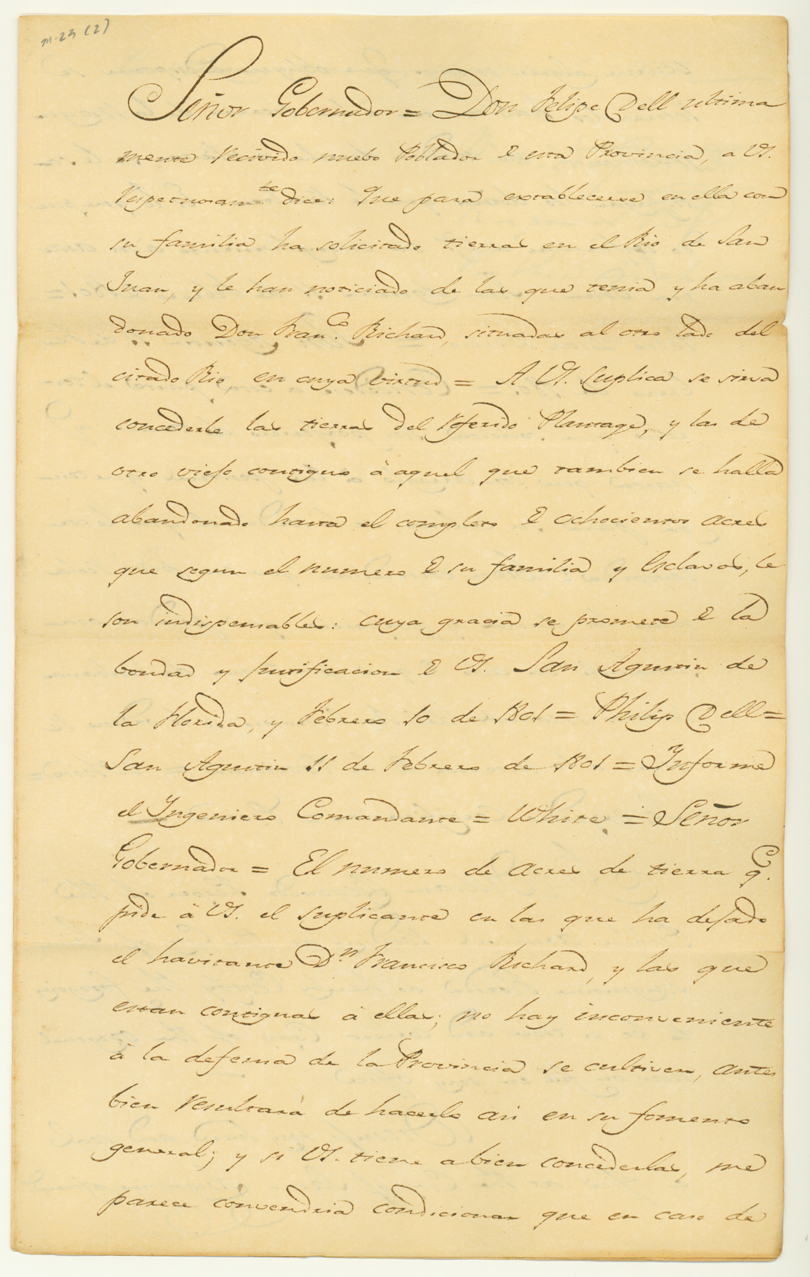 m-23 (2)
Señor Gobernador = Don Felipe Dell ultima
mente recivido nuebo Poblador de esta Provincia, a VS.
respetuosam.te dice: Que para establecerse en ella con
su familia ha solicitado tierras en el Rio de San
Juan, y le han noticiado de las que tenia y ha aban
donado Don Fran.co Richard, situadas al otro lado del
citado Rio, en cuya virtud = A VS. suplica se sirva
concederle las tierras del referido Plantage, y las de
otro viejo contiguo á aquel que tambien se halla
abandonado hasta el completo de ochocientos acres
que segun el numero de su familia y Esclavos, le
son indispensables: cuya gracia se promete de la
bondad y justificacion de VS. San Agustin de
la Florida, y Febrero 10 de 1801 = Philip Dell =
San Agustin 11 de Febrero de 1801 = Informe
el Ingeniero Comandante = White = Señor
Gobernador = El numero de acres de tierra q.
pide á VS. el suplicante en las que ha dejado
el havitante D.n Francisco Richard, y las que
estan contiguas á ellas; no hay inconveniente
á la defensa de la Provincia se cultiven, antes
bien resultará de hacerlo asi en su fomento
general; y si VS. tiene abien concederlas, me
parece convendria condicionar que en caso de